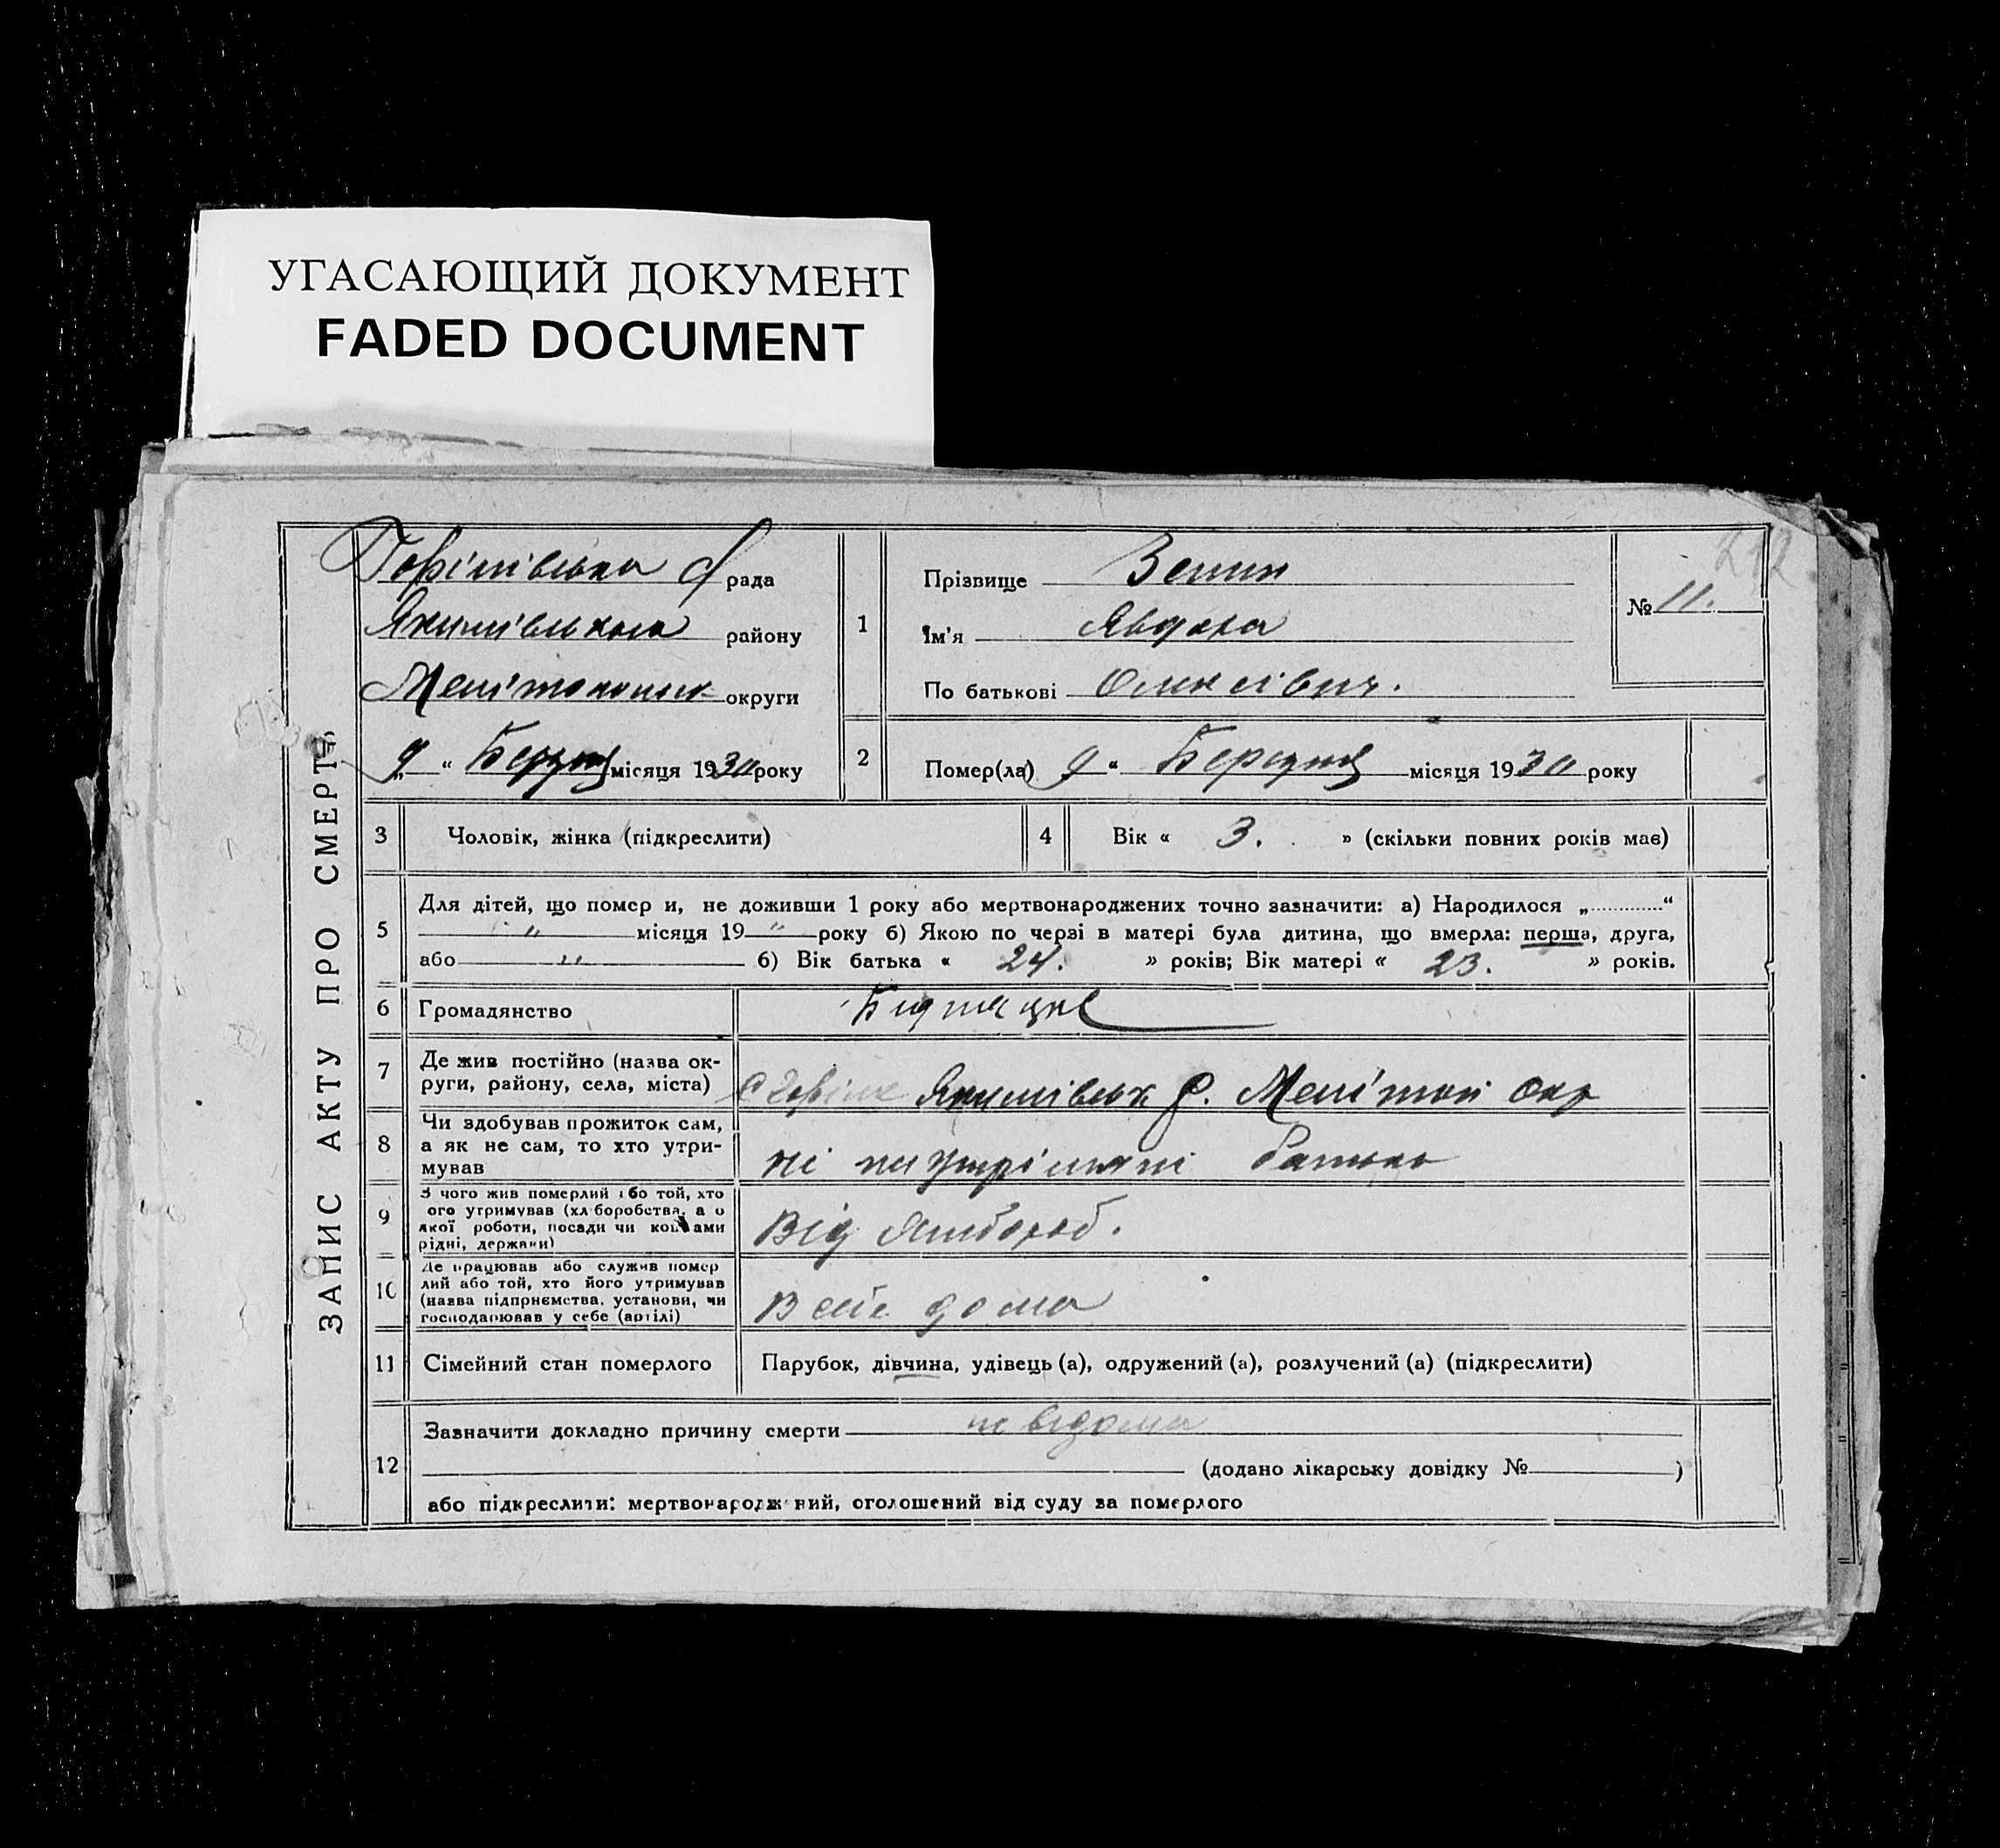 УГАСАЮЩИЙ ДОКУМЕНТ
FADED DOCUMENT
212
ЗАПИС АКТУ ПРО СМЕРТЬ
рада
Якимівського району
округи
„9“ Березня місяця 1930 року
1
Прізвище
Ім'я Явдоха
По батькові Олексієвич.
№ 11.
2
Помер(ла) „9“ Березня місяця 1930 року
3
Чоловік, жінка (підкреслити)
4
Вік « 3. » (скільки повних років має)
5
Для дітей, що помер и, не доживши 1 року або мертвонароджених точно зазначити: а) Народилося „ “
" місяця 19 " року б) Якою по черзі в матері була дитина, що вмерла: перша, друга,
або " б) Вік батька « 24. » років; Вік матері « 23. » років.
6
Громадянство
7
Де жив постійно (назва ок-
руги, району, села, міста)
Якимівськ р. Мелітоп окр
8
Чи здобував прожиток сам,
а як не сам, то хто утри-
мував
ні на утріманні батька
9
З чого жив померлий або той, хто
ого утримував (хл боробства, а о
якої роботи, посади чи кош ами
рідні, держави)
Від
10
Де працював або служив помер
лий або той, хто його утримував
(назва підприємства, установи, чи
господарював у себе (артілі)
дома
11
Сімейний стан померлого
Парубок, дівчина, удівець (а), одружений (а), розлучений (а) (підкреслити)
12
Зазначити докладно причину смерти не відома
(додано лікарську довідку № )
або підкреслити: мертвонародж ний, оголошений від суду за померлого